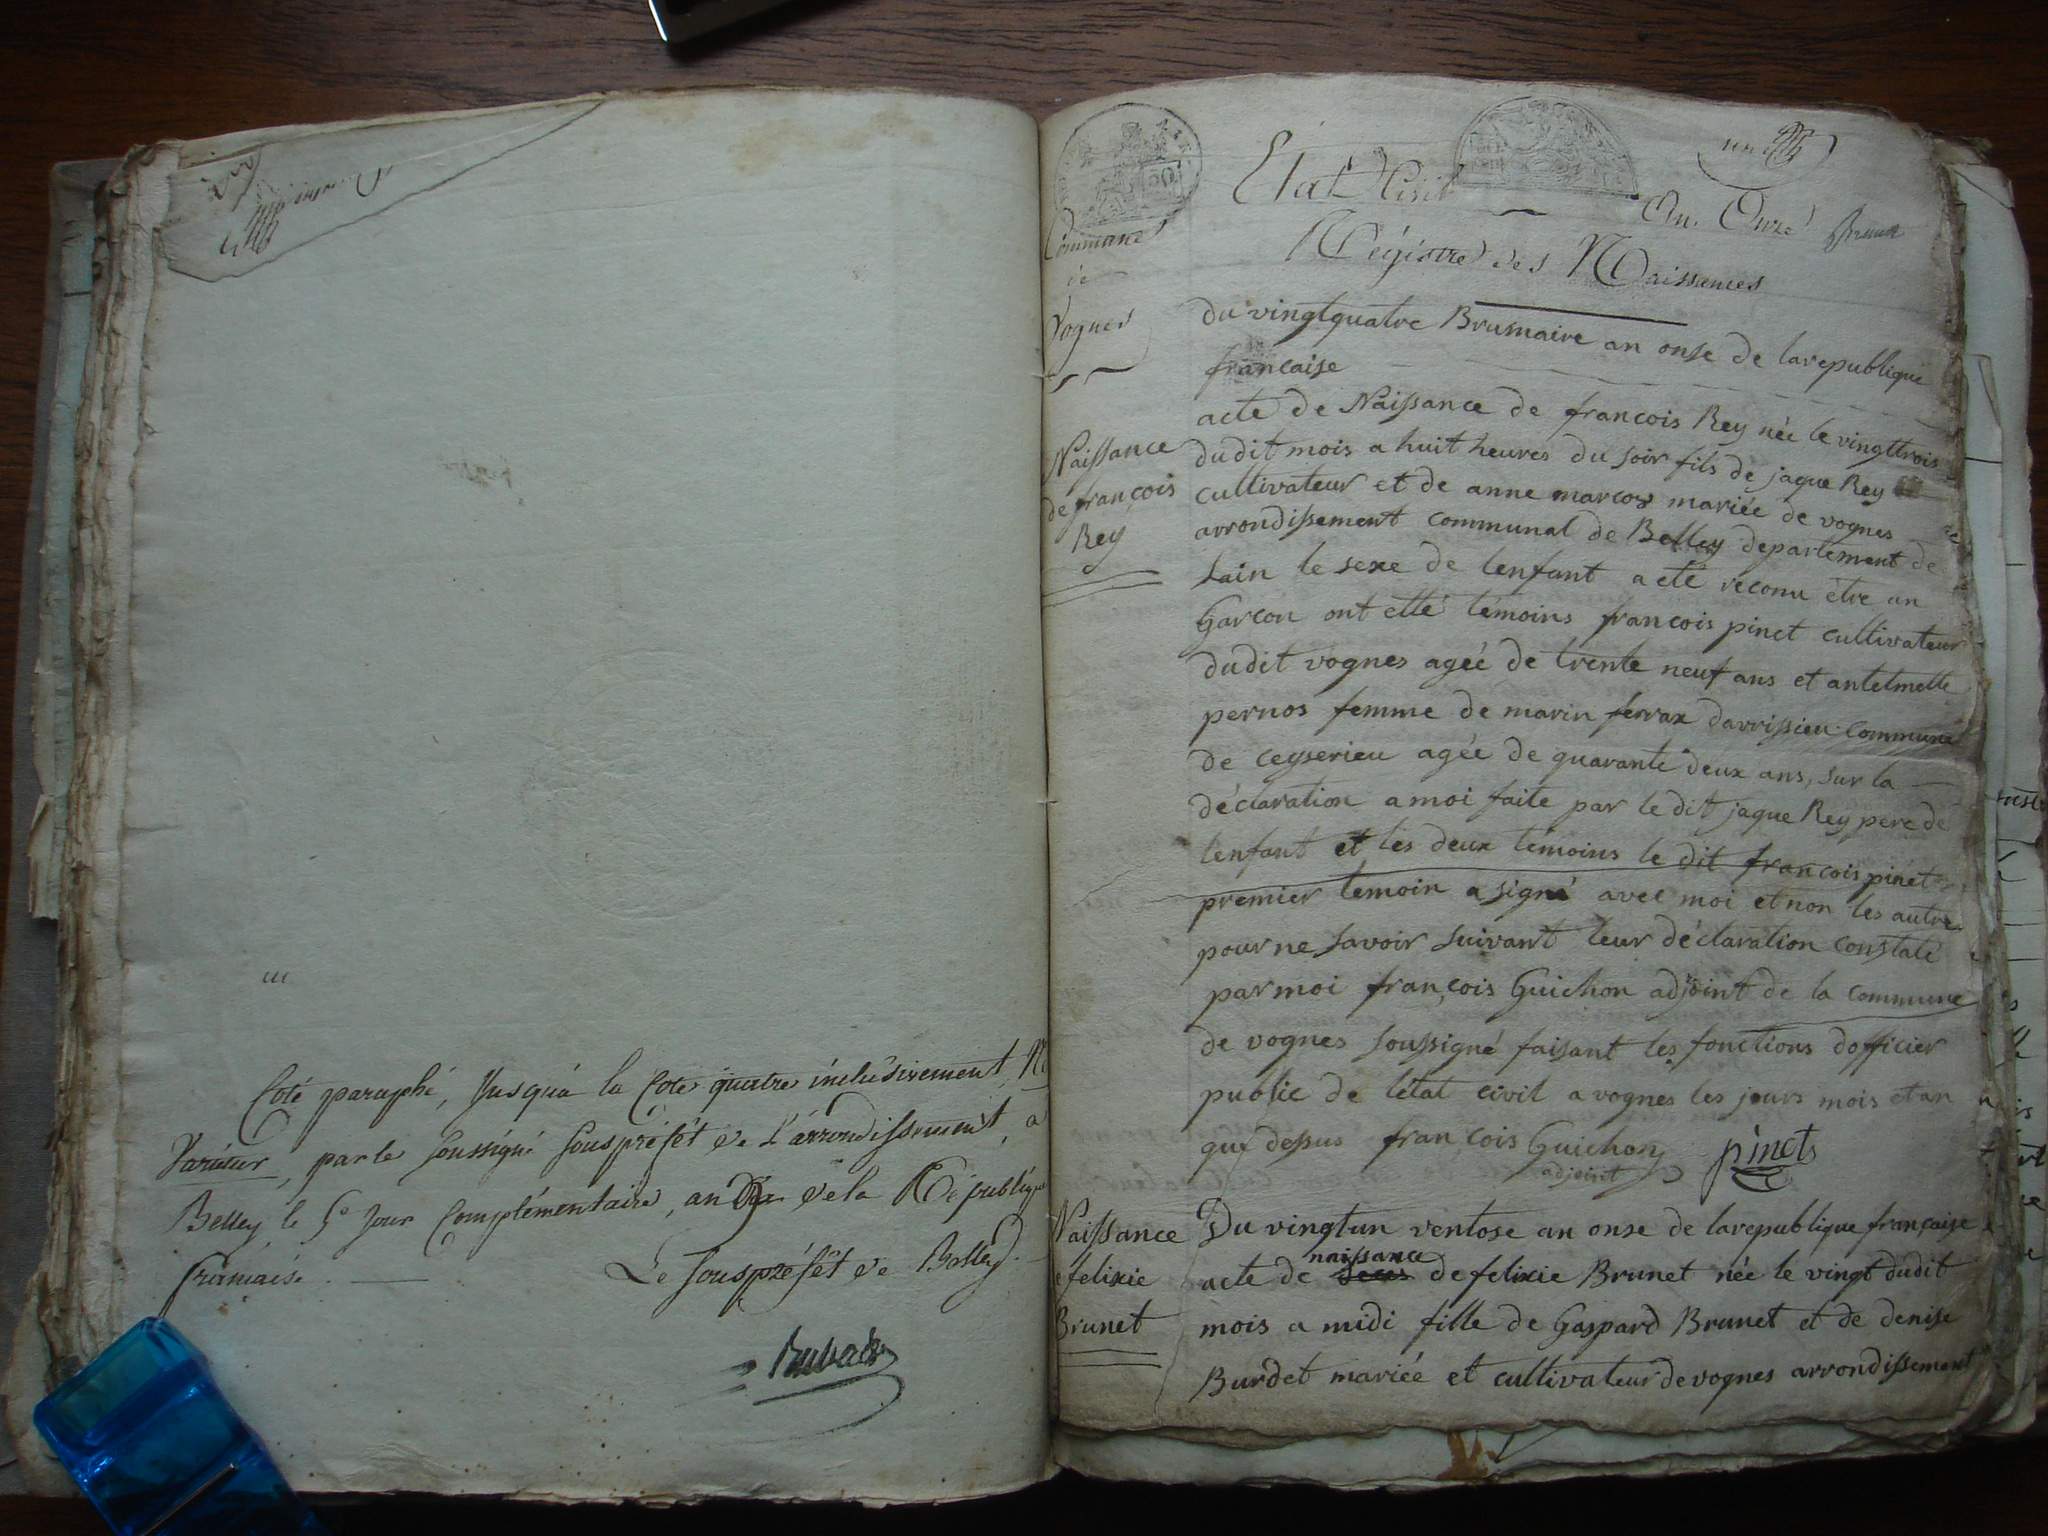 Coté paraphé, Jusqu'à la Cote quatre inclusivement, Ne
Varietur, par le soussigné souspréfét de L'arrondissement, a
Belley le 5e Jour Complémentaire, an Dix de la République
française.
Le souspréfét de Belley.
Etat Civil
An. Onze
Commune
de
Vognes
Régistre des Naissances
Du vingtquatre Brumaire an onse de la republique
francaise
Naissance
de françois
Rey
acte de Naissance de francois Rey née le vingttrois
dudit mois a huit heures du soir fils de jaque Rey
cultivateur et de anne marcos mariée de vognes
arrondissement communal de Belley departement de
Lain le sexe de lenfant a eté reconu être un
Garcon ont etté témoins francois pinet cultivateur
dudit vognes ageé de trente neuf ans et antelmette
pernos femme de marin ferrax darvissieu commune
de ceyserieu agée de quarante deux ans, sur la
déclaration a moi faite par le dit jaque Rey pere de
lenfant et les deux témoins le dit francois pinet
premier temoin a signé avec moi et non les autre
pour ne savoir suivant leur déclaration constaté
par moi françois Guichon adjoint de la commune
de vognes soussigné faisant les fonctions dofficier
public de létat civil a vognes les jours mois et an
que dessus françois Guichon pinet
adjoint
Naissance
felixie
Brunet
Du vingtun ventose an onse de la republique française
naissance
acte de deces de felixie Brunet née le vingt dudit
mois a midi fille de Gaspard Brunet et de denise
Burdet mariée et cultivateur de vognes arrondissement